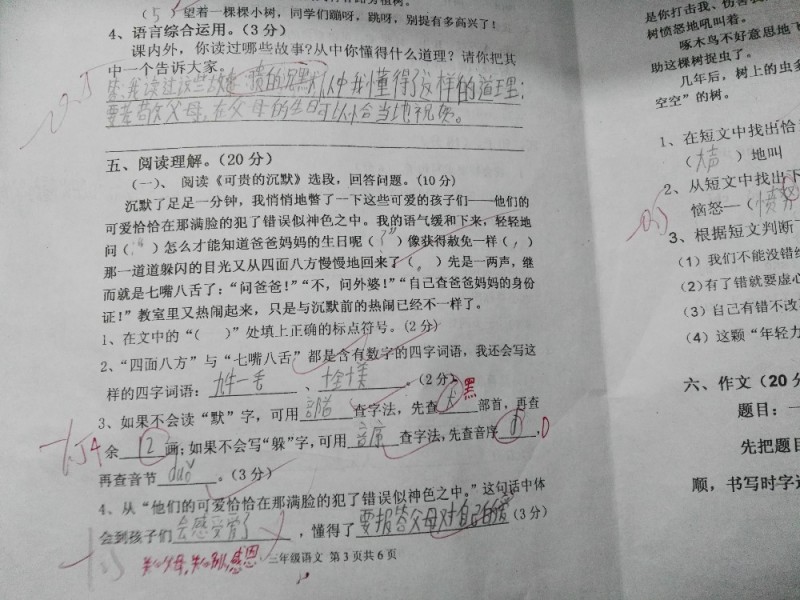 (5 望着一棵棵小树，同学们蹦呀，跳呀，别提有多高兴了！
4、语言综合运用。(3 分)
课内外，你读过哪些故事？从中你懂得什么道理？请你把其
中一个告诉大家。
我读过 贵的沉默 从中我懂得了这样的道理：
要 父母,在父母的生日可以恰当地祝贺。
五、阅读理解。(20 分)
(一)、阅读《可贵的沉默》选段，回答问题。(10 分)
沉默了足足一分钟，我悄悄地瞥了一下这些可爱的孩子们——他们的
可爱恰恰在那满脸的犯了错误似神色之中。我的语气缓和下来，轻轻地
问（：“）怎么才能知道爸爸妈妈的生日呢（？”）像获得赦免一样（，）
那一道道躲闪的目光又从四面八方慢慢地回来了（。）先是一两声，继
而就是七嘴八舌了：“问爸爸！”“不，问外婆！”“自己查爸爸妈妈的身份
证！”教室里又热闹起来，只是与沉默前的热闹已经不一样了。
1、在文中的“（ ）”处填上正确的标点符号。(2 分)
2、“四面八方”与“七嘴八舌”都是含有数字的四字词语，我还会写这
样的四字词语：九牛一毛、十全十美。(2 分)
3、如果不会读“默”字，可用部首查字法，先查 黑 部首，再查
余 12 画；如果不会写“躲”字，可用音序查字法，先查音序 d D，
再查音节 duǒ。(3 分)
4、从“他们的可爱恰恰在那满脸的犯了错误似神色之中。”这句话中体
会到孩子们会感受爱了，懂得了要报答父母对自己的爱(3 分)
关心父母,知 感恩
三年级语文 第 3 页共 6 页
是你打击我、伤害
树愤怒地吼叫着。
啄木鸟不好意思地飞
助这棵树捉虫了。
几年后，树上的虫多
空空”的树。
1、在短文中找出恰
（大声）地叫
2、从短文中找出下
恼怒—（愤怒
3、根据短文判断
(1) 我们不能没错
(2)有了错就要虚心
(3) 自己有错不改
(4) 这颗“年轻力
六、作文（20 分
题目：一
先把题目
顺，书写时字迹